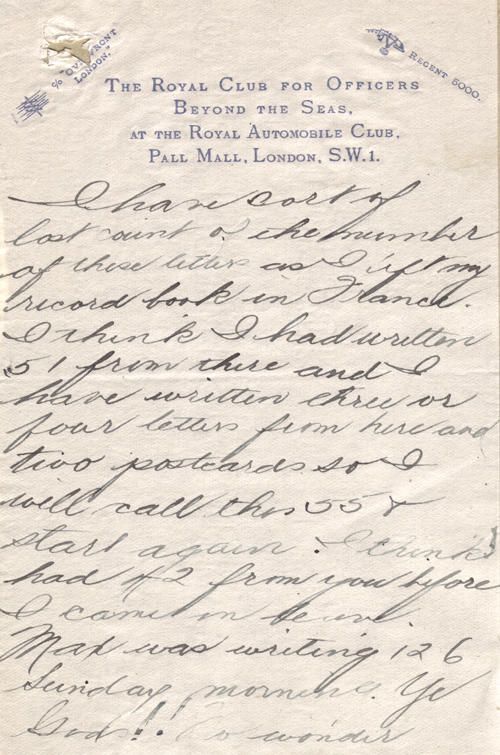 c/o "OVERFRONT
LONDON."
REGENT 5000.
THE ROYAL CLUB FOR OFFICERS
BEYOND THE SEAS,
AT THE ROYAL AUTOMOBILE CLUB,
PALL MALL, LONDON, S.W.1.
I have sort of
lost count of the number
of these letters as I left my
record book in France.
I think I had written
51 from there and I
have written three or
four letters from here and
two postcards so I
will call this 55 &
start again. I think I
had 42 from you before
I came on leave.
Max was writing 126
Sunday morning. Ye
Gods!! No wonder